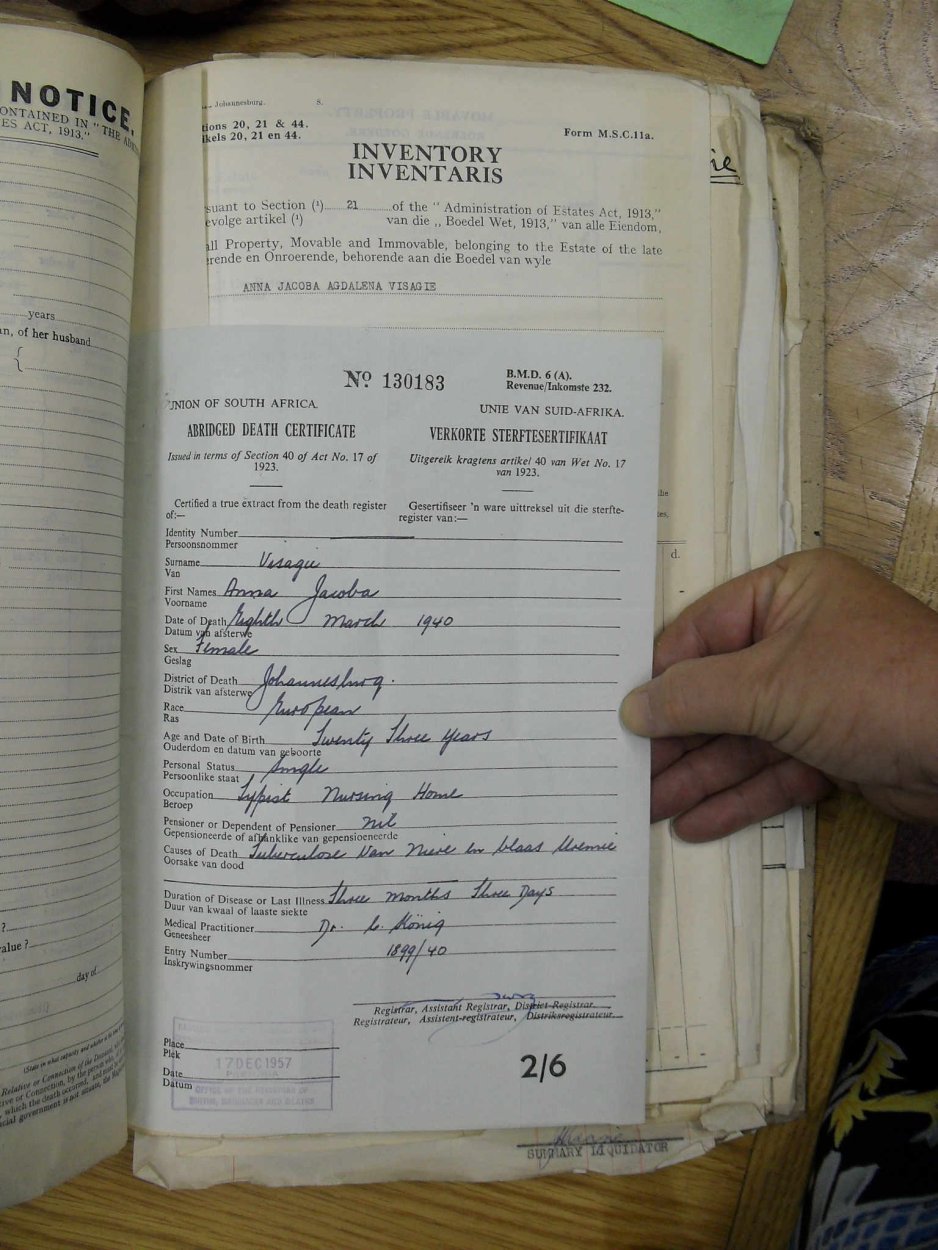 NOTICE.
ONTAINED IN "THE
ES ACT, 1913."
years
n, of her husband
{
?
value ?
day of
(State in what capacity and whether
Relative or Connection of the Deceased,
Johannesburg. S.
tions 20, 21 & 44.
ikels 20, 21 en 44.
Form M.S.C.11a.
INVENTORY
INVENTARIS
suant to Section (¹) 21 of the " Administration of Estates Act, 1913,"
evolge artikel (¹) van die ,, Boedel Wet, 1913," van alle Eiendom,
all Property, Movable and Immovable, belonging to the Estate of the late
erende en Onroerende, behorende aan die Boedel van wyle
ANNA JACOBA AGDALENA VISAGIE
d.
Nº 130183
B.M.D. 6 (A).
Revenue/Inkomste 232.
UNION OF SOUTH AFRICA.
UNIE VAN SUID-AFRIKA.
ABRIDGED DEATH CERTIFICATE
VERKORTE STERFTESERTIFIKAAT
Issued in terms of Section 40 of Act No. 17 of
1923.
Uitgereik kragtens artikel 40 van Wet No. 17
van 1923.
Certified a true extract from the death register
of:—
Gesertifiseer 'n ware uittreksel uit die sterfte-
register van:—
Identity Number
Persoonsnommer
Surname Visagie
Van
First Names Anna Jacoba
Voorname
Date of Death Eighth March 1940
Datum van afsterwe
Sex Female
Geslag
District of Death Johannesburg.
Distrik van afsterwe
Race European
Ras
Age and Date of Birth Twenty Three Years
Ouderdom en datum van geboorte
Personal Status Single
Persoonlike staat
Occupation Typist Nursing Home
Beroep
Pensioner or Dependent of Pensioner nil
Gepensioneerde of afhanklike van gepensioeneerde
Causes of Death Tuberculose van niere en blaas Uremie
Oorsake van dood
Duration of Disease or Last Illness Three months Three Days
Duur van kwaal of laaste siekte
Medical Practitioner Dr. C. König
Geneesheer
Entry Number 1899/40
Inskrywingsnommer
Registrar, Assistant Registrar, District Registrar.
Registrateur, Assistent-registrateur, Distriksregistrateur.
Place
Plek
Date
Datum
17 DEC 1957
PRETORIA
OFFICE OF THE REGISTRAR OF
BIRTHS, MARRIAGES AND DEATHS
2/6
SUMMARY LIQUIDATOR